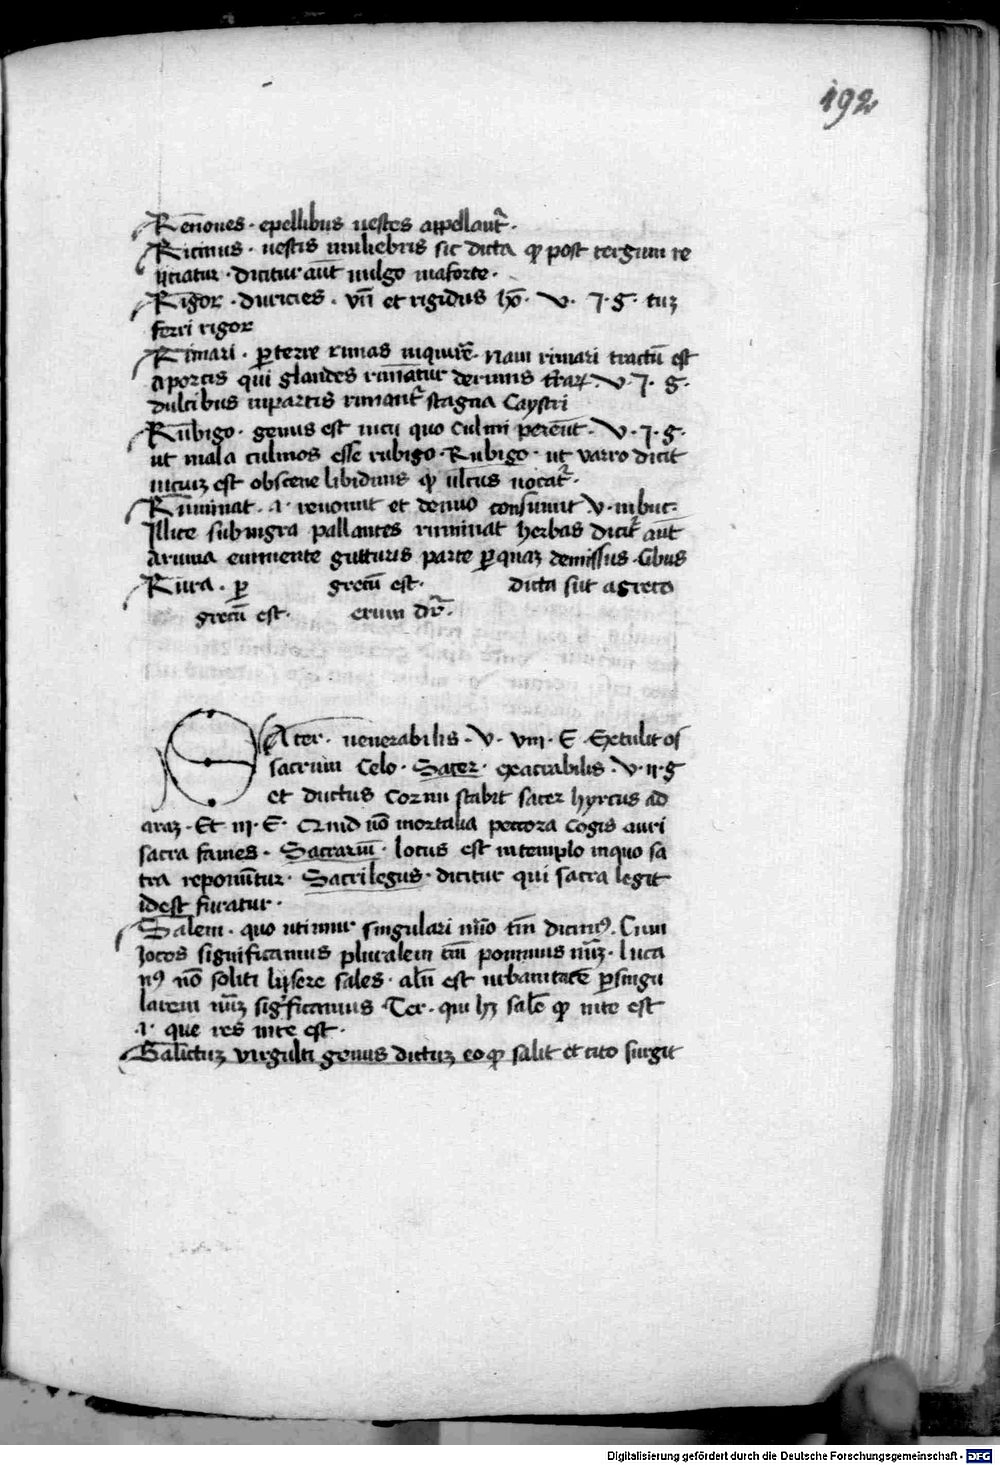 192
Renoues · epellibus uestes appellant᷑ ·
Ricinus · uestis muliebris sic dicta ꝙ post tergum re
ijciatur · dicitur aūt uulgo maforte ·
Rigor · duricies · vn̄ et rigidus hō · V · J · G · tuꝫ
ferri rigor
Rimari · ꝑterre rimas inquirē · nam rimari tractū est
aporcis qui glandes rimātur derimis · V · J · G ·
dulcibus inpartis rimant᷑ stagna Caystri
Rubigo · genus est uicij quo culmi pereūt · V · J · G ·
ut mala culmos esse rubigo · Rubigo · ut varro dicit
uiciuꝫ est obscene libidinis ꝙ ulcus uocat᷑ ·
Ruminat · i · reuomit et denuo consumit V · inbuc ·
Illice sub nigra pallantes ruminat herbas dicit᷑ aūt
aruma eminente gutturis parte ꝑ quaꝫ demissus Cibus
Rura · ꝑ grecū est · dicta sūt agreco
grecū est · erum dr̄ ·
SAcer · uenerabilis · V · viii · E · Extulit os
sacrum Celo · Sacer · execrabilis · V · ii · g
et ductus cornu stabit sacer hyrcus ad
araꝫ · Et iii · E · Quid nō mortalia pectora cogis auri
sacra fames · Sacrariū · locus est intemplo inquo sa
cra reponūtur · Sacrilegus · dicitur qui sacra legit
idest furatur ·
Salem · quo utimur singulari nūo tm̄ dicimꝰ · Cum
Jocos significamus pluralem tm̄ ponimus nūꝫ · luca
nꝰ nō soliti lusere sales · alr̄ est urbanitatē ꝑsingu
larem nūꝫ significamus · Ter · qui hꝫ salē ꝙ inte est
· i · que res inte est ·
Salictuꝫ virgulti genus dictuꝫ eoꝙ salit et cito surgit
Digitalisierung gefördert durch die Deutsche Forschungsgemeinschaft - DFG